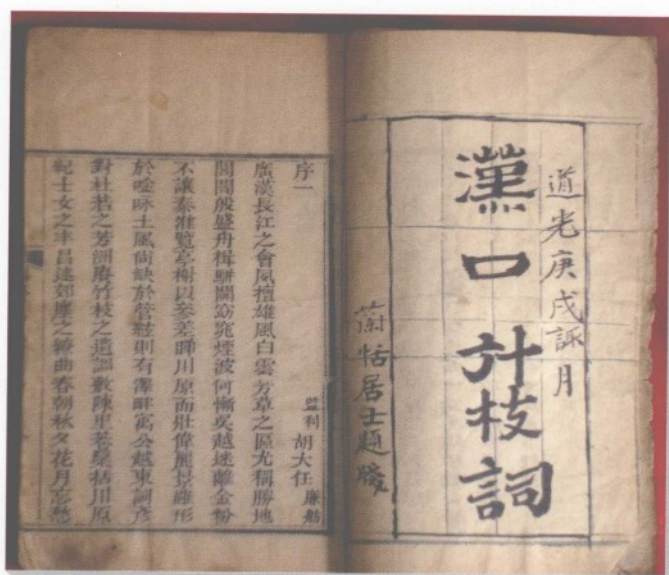 道光庚戌諏月
漢口竹枝詞
居士題
序一
監利 胡大任 廉舫
廣漢長江之會夙擅雄風白雲芳草之區尤稱勝地
閭閻殷盛舟楫駢闐窈窕煙波何慚吳越迷離金粉
不讓秦淮覽亭榭以參差睇川原而壯偉麗景雖形
於唫咏土風尚缺於管絃則有霅畔寓公越東詞彥
對杜若之芳洲賡竹枝之遺謳敷陳里巷櫽栝川原
紀士女之丰昌述郊廛之繚曲春朝秋夕花月忘愁